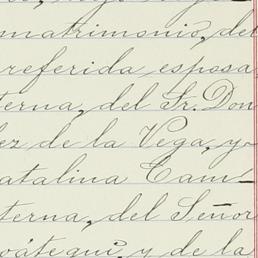 matrimonio, del
referida esposa,
terna, del Sr. Don
ez de la Vega, y
atalina Cam-
terna, del Señor
oátegui, y de la